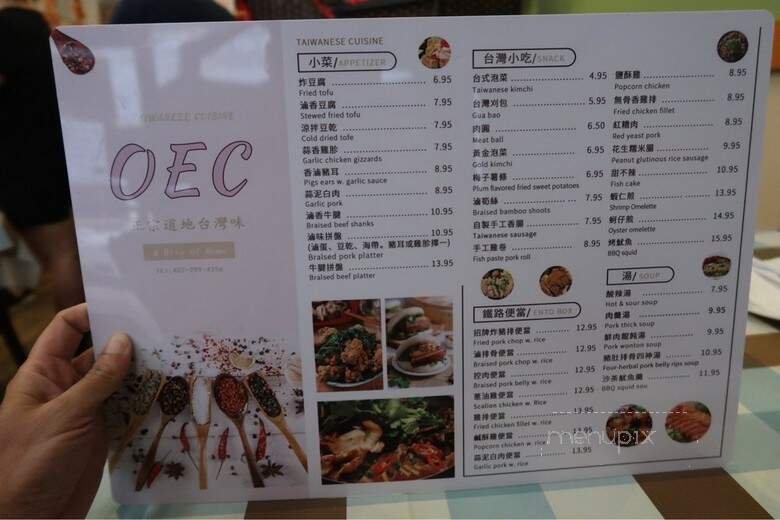 TAIWANESE CUISINE
OEC
正宗道地台灣味
A Bite of Home
TAIWANESE CUISINE
小菜/APPETIZER
炸豆腐 6.95
Fried tofu
滷香豆腐 7.95
Stewed fried tofu
涼拌豆乾 7.95
Cold dried tofe
蒜香雞胗 7.95
Garlic chicken gizzards
香滷豬耳 8.95
Pigs ears w. garlic sauce
蒜泥白肉 8.95
Garlic pork
滷香牛腱 10.95
Braised beef shanks
滷味拼盤 10.95
(滷蛋、豆乾、海帶。豬耳或雞胗擇一)
Braised pork platter
牛腱拼盤 13.95
Braised beef platter
台灣小吃/SNACK
台式泡菜 4.95
Taiwanese kimchi
台灣刈包 5.95
Gua bao
肉圓 6.50
Meat ball
黃金泡菜 6.95
Gold kimchi
梅子薯條 6.95
Plum flavored fried sweet potatoes
滷筍絲 7.95
Braised bamboo shoots
自製手工香腸 7.95
Taiwanese sausage
手工雞卷 8.95
Fish paste pork roll
鹽酥雞 8.95
Popcorn chicken
無骨香雞排 8.95
Fried chicken fillet
紅糟肉 8.95
Red yeast pork
花生糯米腸 9.95
Peanut glutinous rice sausage
甜不辣 10.95
Fish cake
蝦仁煎 13.95
Shrimp Omelette
蚵仔煎 14.95
Oyster omelette
烤魷魚 15.95
BBQ squid
鐵路便當/ENTO BOX
招牌炸豬排便當 12.95
Fried pork chop w. rice
滷排骨便當 12.95
Braised pork chop w. rice
控肉便當 12.95
Braised pork belly w. rice
蔥油雞便當 12.95
Scalion chicken w. rice
雞排便當 12.95
Fried chicken fillet w. rice
鹹酥雞便當
Popcorn chicken w. rice
蒜泥白肉便當 13.95
Garlic pork w. rice
湯/SOUP
酸辣湯 7.95
Hot & sour soup
肉羹湯 9.95
Pork thick soup
鮮肉餛飩湯 9.95
Pork wonton soup
豬肚排骨四神湯 10.95
Four-herbal pork belly rips soup
沙茶魷魚羹 11.95
BBQ squid sou
menupix